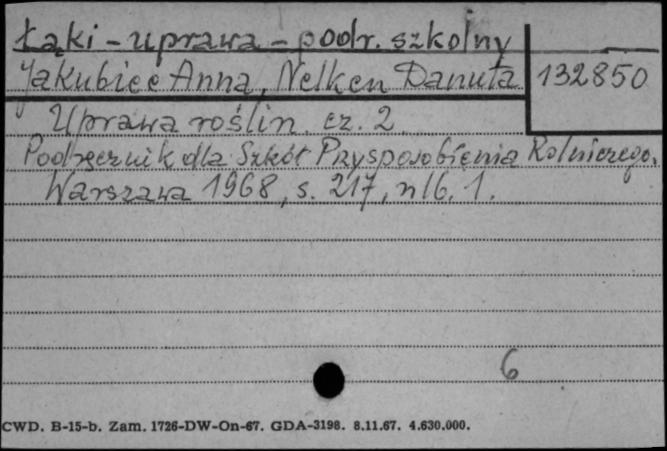 Łąki - uprawa - podr. szkolny
Jakubiec Anna, Nelken Danuta
132850
Uprawa roślin. cz. 2
Podręcznik dla Szkół Przysposobienia Rolniczego.
Warszawa 1968, s. 217, nlb. 1.
6
CWD. B-15-b. Zam. 1726-DW-On-67. GDA-3198. 8.11.67. 4.630.000.